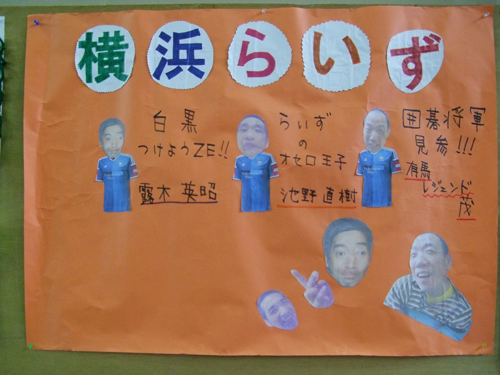 横浜らいず
白黒
つけようZE!!
露木 英昭
らいず
の
オセロ王子
池野 直樹
囲碁将軍
見参!!!
有馬
レジェンド
茂